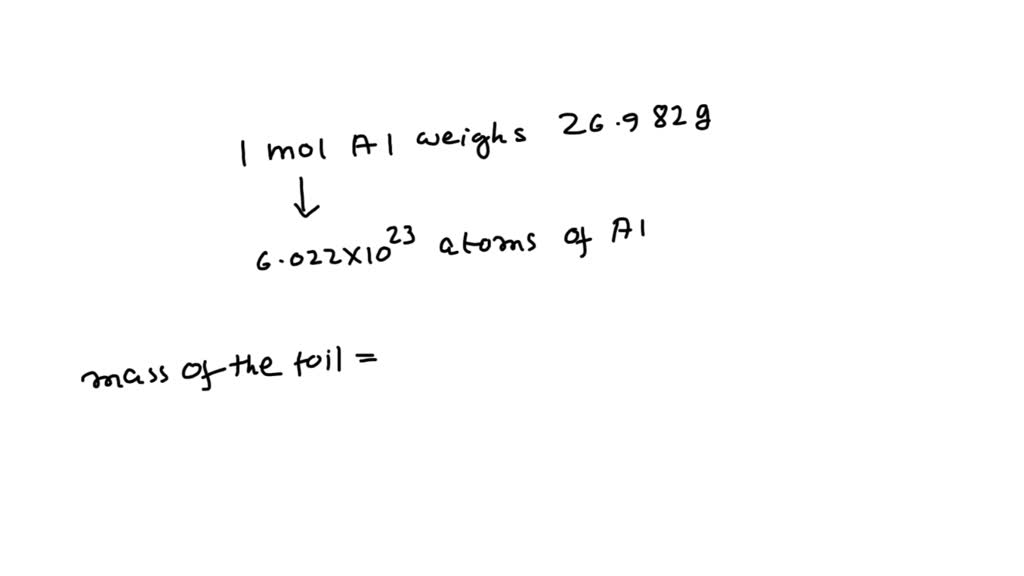 1 mol Al weighs 26.982g
↓
6.022×10²³ atoms of Al
mass of the foil =